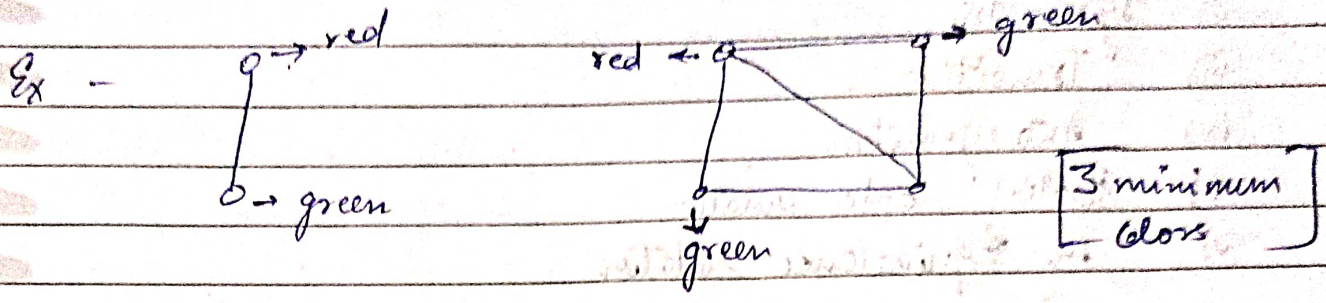 Ex -
→ red
→ green
red ←
→ green
green
[3 minimum
colors]